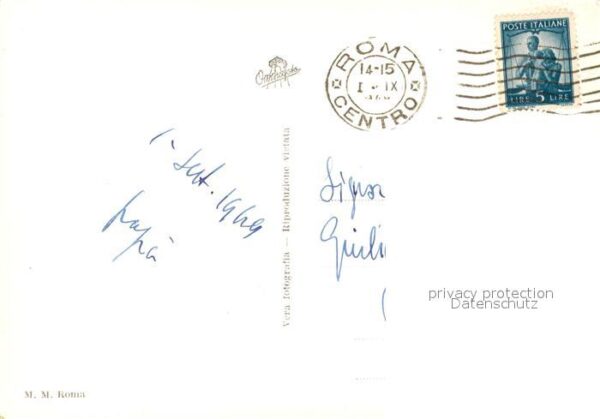 ROMA
14-15
1 • IX
CENTRO
POSTE ITALIANE
LIRE 5 LIRE
1 Set. 1949
papà
Vera fotografia — Riproduzione vietata
Signor
Giuli
privacy protection
Datenschutz
M. M. Roma